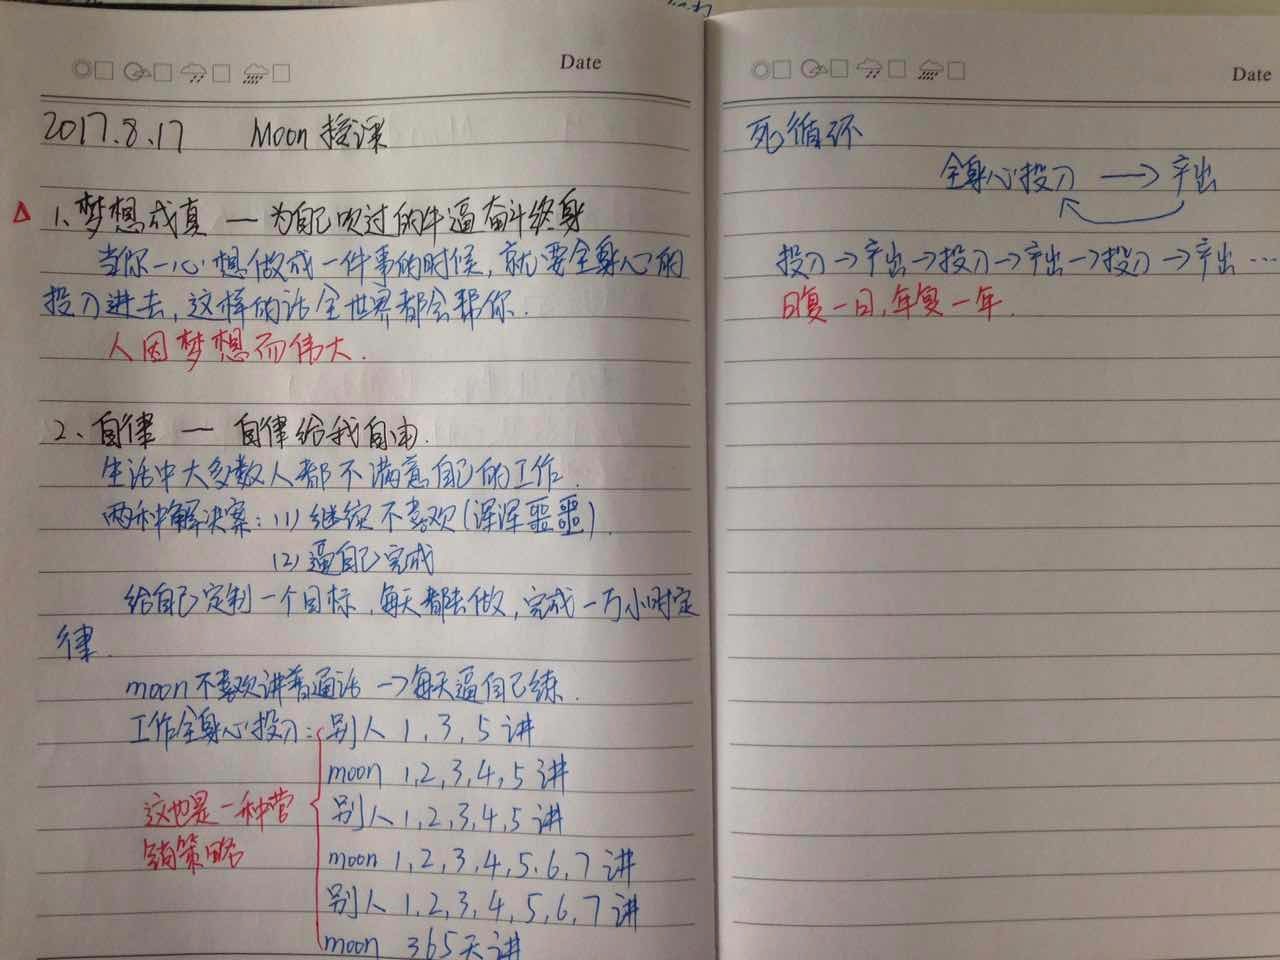 Date
2017.8.17 Moon 授课
1、梦想成真 — 为自己吹过的牛逼奋斗终身
当你一心想做成一件事的时候，就要全身心的
投入进去，这样的话全世界都会帮你.
人因梦想而伟大.
2、自律 — 自律给我自由.
生活中大多数人都不满意自己的工作.
两种解决案：(1) 继续不喜欢(浑浑噩噩)
(2) 逼自己完成
给自己定制一个目标，每天都去做，完成一万小时定
律.
moon不喜欢讲普通话 → 每天逼自己练.
工作全身心投入：别人 1,3,5 讲
moon 1,2,3,4,5 讲
这也是一种营
销策略
别人 1,2,3,4,5 讲
moon 1,2,3,4,5,6,7 讲
别人 1,2,3,4,5,6,7 讲
moon 365天讲
Date
死循环
全身心投入 → 产出
投入→产出→投入→产出→投入→产出…
日复一日，年复一年.